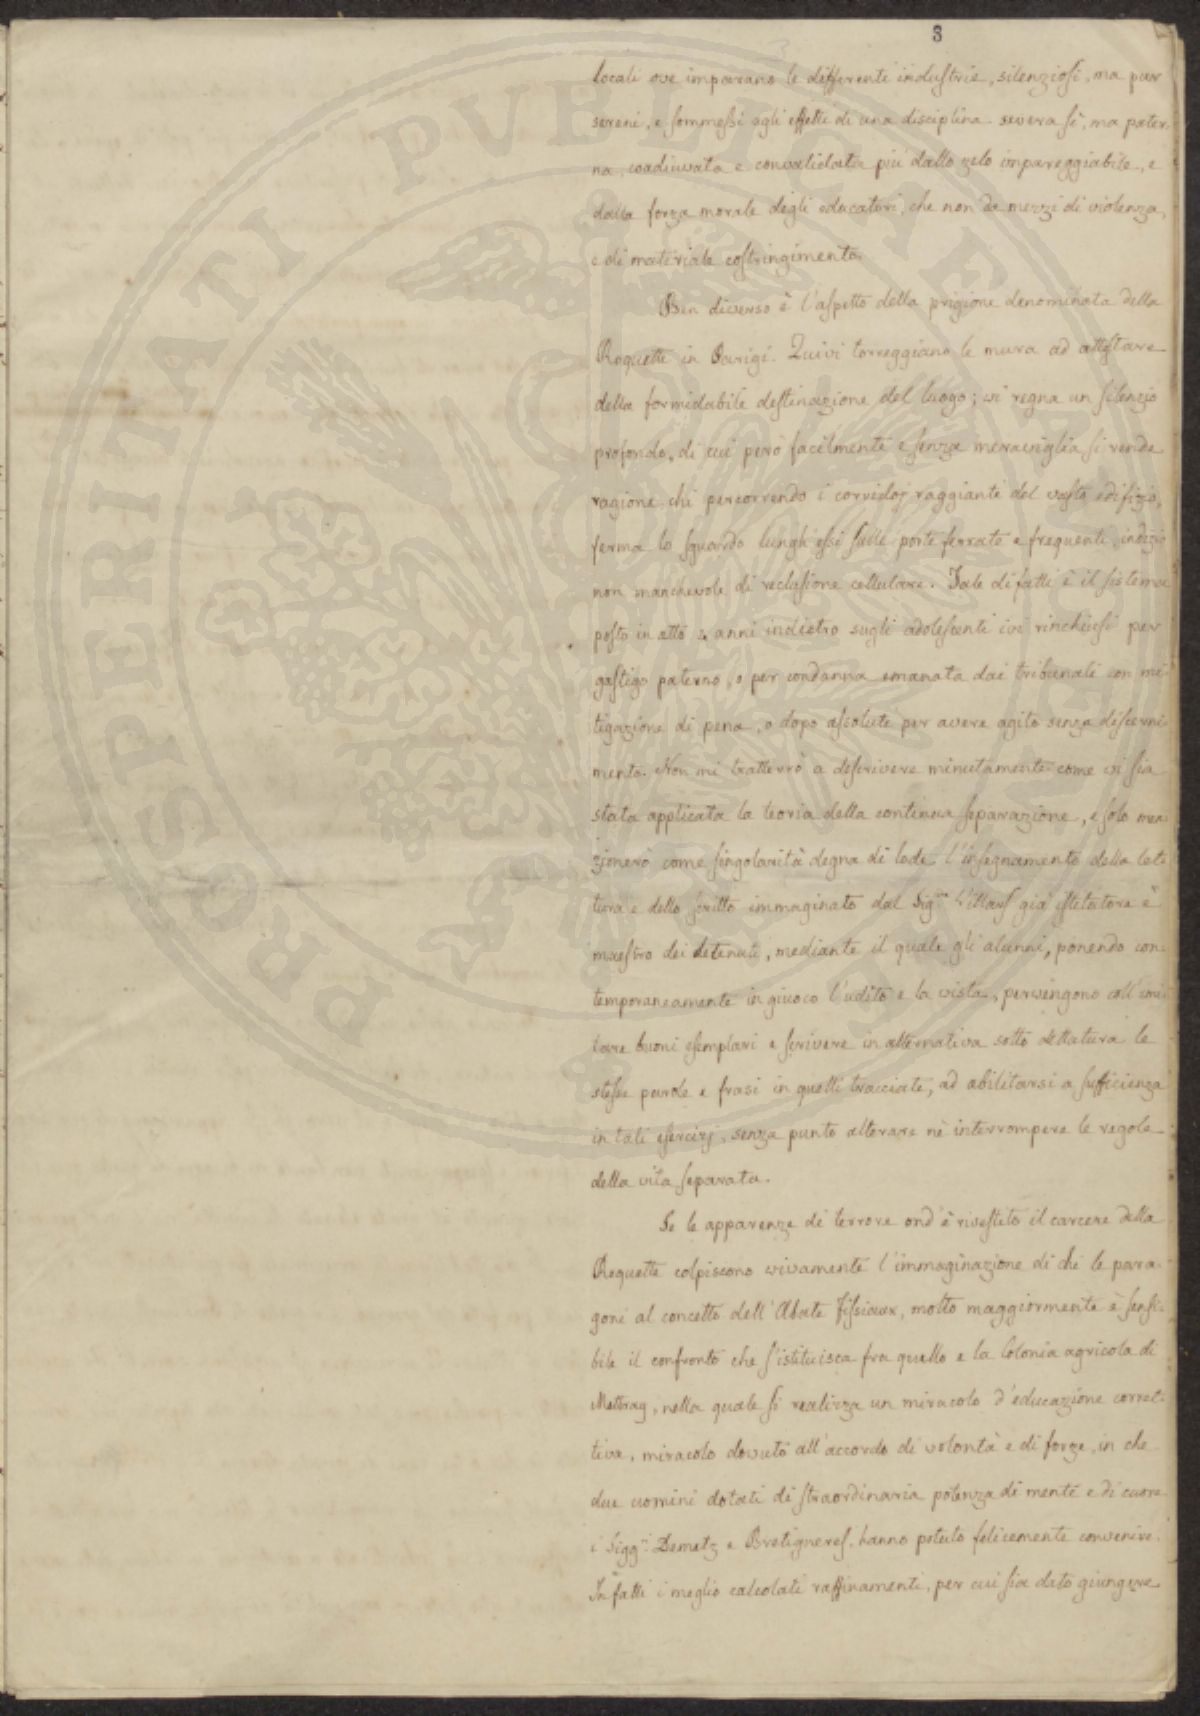 3
locali ove imparano le differenti industrie, silenziosi, ma pur
sereni, e sommessi agli effetti di una disciplina severa sì, ma pater-
na, coadiuvata e convalidata più dallo zelo impareggiabile, e
dalla forza morale degli educatori, che non da mezzi di violenza,
e di materiale costringimento.
Ben diverso è l'aspetto della prigione denominata della
Roquette in Parigi. Quivi torreggiano le mura ad attestare
della formidabile destinazione del luogo; vi regna un silenzio
profondo, di cui però facilmente e senza meraviglia si rende
ragione chi percorrendo i corridoj raggianti del vasto edifizio,
ferma lo sguardo lungh'essi sulle porte ferrate e frequenti, indizio
non manchevole di reclusione cellulare. Tale di fatti è il sistema
posto in atto anni indietro sugli adolescenti ivi rinchiusi per
gastigo paterno, o per condanna emanata dai tribunali con mi-
tigazione di pena, o dopo assoluti per avere agito senza discerni-
mento. Non mi tratterrò a descrivere minutamente come vi sia
stata applicata la teoria della continua separazione, e solo men-
zionerò come singolarità degna di lode l'insegnamento della let-
tura e dello scritto immaginato dal Sig.re Villars già istitutore e
maestro dei detenuti, mediante il quale gli alunni, ponendo con-
temporaneamente in giuoco l'udito e la vista, pervengono coll'imi-
tare buoni esemplari e scrivere in alternativa sotto dettatura le
stesse parole e frasi in quelli tracciate, ad abilitarsi a sufficienza
in tali esercizj, senza punto alterare nè interrompere le regole
della vita separata.
Se le apparenze di terrore ond'è rivestito il carcere della
Roquette colpiscono vivamente l'immaginazione di chi le para-
goni al concetto dell'Abate Fissiaux, molto maggiormente è sensi-
bile il confronto che s'istituisca fra quello e la Colonia agricola di
Mettray, nella quale si realizza un miracolo d'educazione corret-
tiva, miracolo dovuto all'accordo di volontà e di forze, in che
due uomini dotati di straordinaria potenza di mente e di cuore
i Sigg.ri Demetz e Bretigneres, hanno potuto felicemente convenire.
In fatti i meglio calcolati raffinamenti, per cui sia dato giungere
PROSPERITATI PUBLICAE